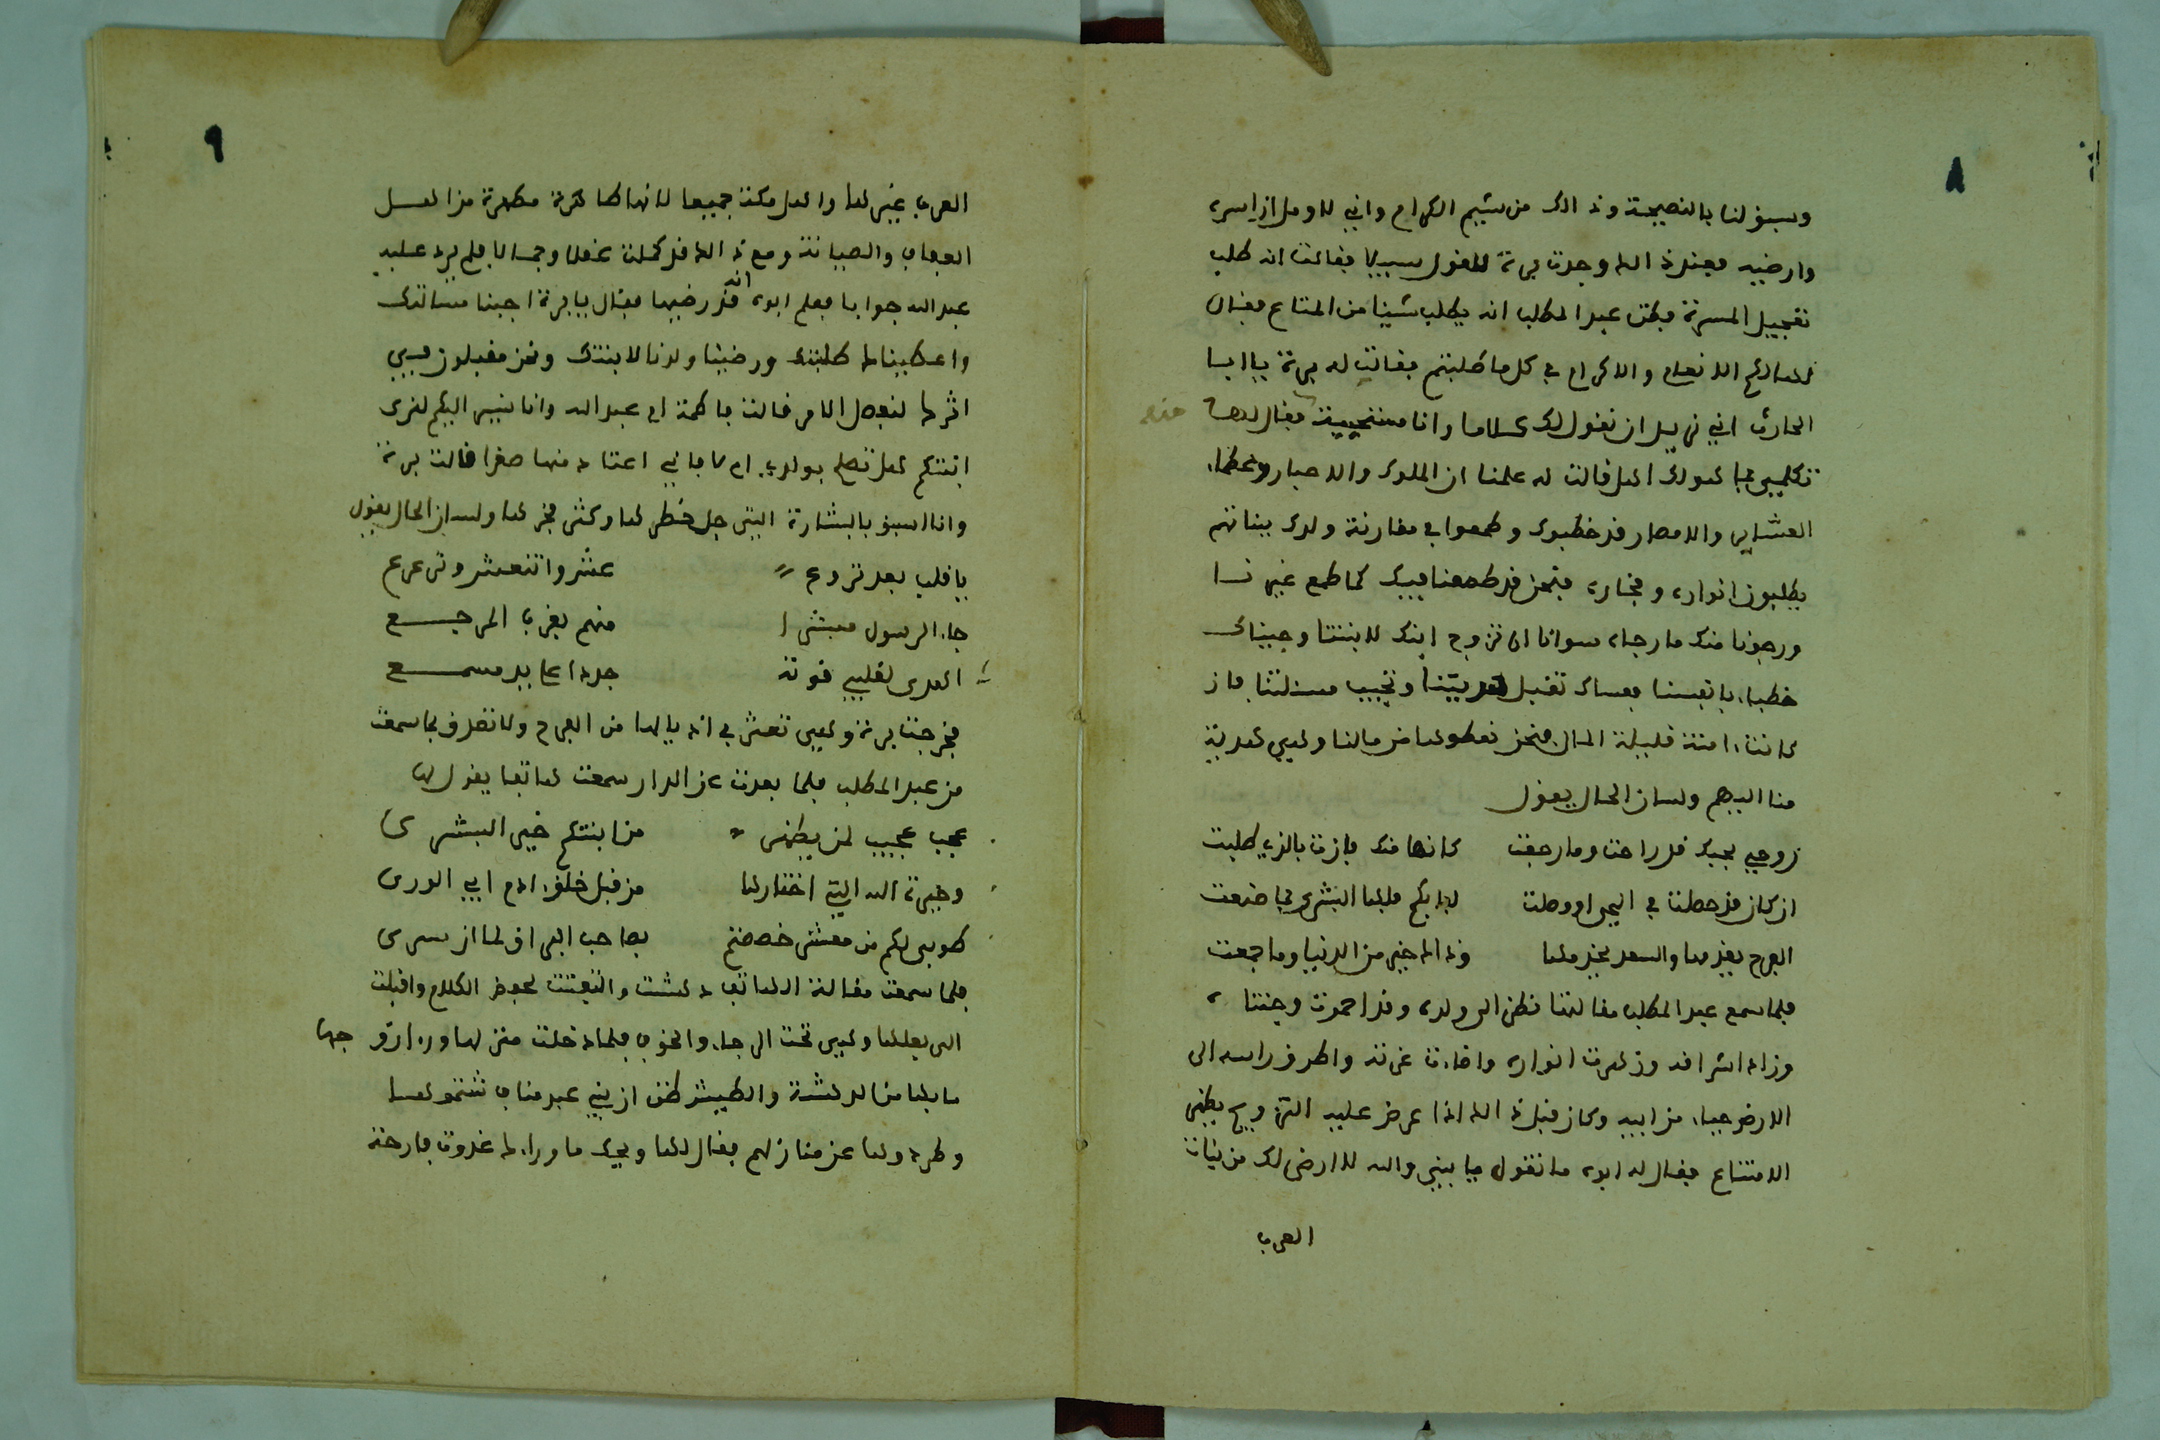 ٨
وسبق لنا بالنصيحة وذالك من شيم الكرام واني لاومل ان اسره
وارضيه فعند ذالك وجدت برة للقول سبيلا فقالت انه طلب
تعجيل المسرة فظن عبد المطلب انه يطلب شيئا من المتاع فقال
لكم الانعام والاكرام في كل ما طلبتم فقالت له برة يا ابا
الحارث اني نريد ان نقول لك كلاما وانا مستحيية فقال لها
تكلمي بما لك اهل قالت له علمنا ان الملوك والاحبار وعظماء
العشاير والامصار قد خطبوك وطمعوا في مقارنة ولدك ببناتهم
يطلبون انواره وفخاره فنحن قد طمعنا فيك كما طمع غيرنا
ورجونا منك ما رجاه سوانا ان تزوج ابنك لابنتنا وجيناك
خطباء بانفسنا فعساك تقبل هديتنا وتجيب مسئلتنا فان
كانت امنة قليلة المال فنحن نعطوها من مالنا وهي هدية
منا اليهم ولسان الحال يقول
زوجي بحبك قد راحت وما رجعت كانها منك فازت بالذي طلبت
ان كان قد حصلت في اليم او وصلت لبابكم فلها البشرى بما صنعت
الفرح يقدمها والسعد يخدمها وذالك خير من الدنيا وما جمعت
فلما سمع عبد المطلب مقالتها نظر الى ولده وقد احمرت وجنتاه
وزاد اشراقه وزهرت انواره واضاءت غرته واطرق راسه الى
الارض حياء من ابيه وكان قبل ذالك اذا عرض عليه التزويج يظهر
الامتناع فقال له ابوه ما تقول يا بني والله لا ارضى لك من بنات
العرب
٩
العرب غيرها واهل مكة جميعا لانها طاهرة مطهرة من اهل
العفاف والصيانة ومع ذالك قد كملت عقلا وجمالا فلم يرد عليه
عبد الله جوابا فعلم ابوه انه قد رضيها فقال يا برة اجبنا مسالتك
واعطيناك طلبتك ورضينا ولدنا لابنتك ونحن مقبلون في
اثرك لنفصل الامر قالت فاطمة ام عبد الله وانا نسير اليكم لنرى
ابنتكم هل تصلح بولدي ام لا فاني اعتاد منها صغرا قالت برة
وانا اسبق بالبشارة التي جل خطرها وكثر فخرها ولسان الحال يقول
يا قلب بعد تزوع عشرا تنعش وترعرع
جاء الرسول مبشرا منهم بقرب المرجع
اهدى لقلبي قوته جلا اعايد مسمع
فخرجت برة وهي تعثر في اذيالها من الفرح ولا تصدق بما سمعت
من عبد المطلب فلما بعدت عن الدار سمعت هاتفا يقول لها
عجب عجيب لن يظهر من ابنتكم خير البشرى
وخيرة الله التي اختارها من قبل خلق ادم ابي الورى
طوبى لكم من معشر خصصتم بصاحب البراق لما ان سرى
فلما سمعت مقالة الهاتف دهشت والتفتت لعوض الكلام واقبلت
الى بعلها وهي تحت الرجاء والخوف فلما دخلت منزلها وراء زوجها
ما بها من الدهشة والطيش ظن ان بني عبد مناف شتموها
وطردوها عن منازلهم فقال لها ويحك ما وراءك غدوت فارحة